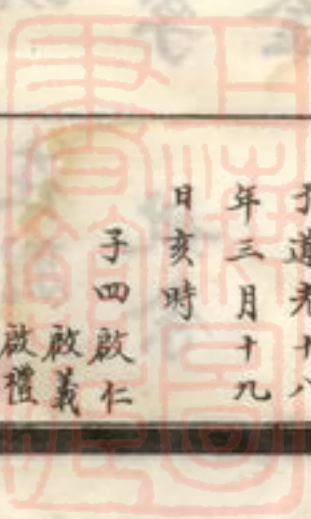 于道光十八
年三月十九
日亥時
子四啟仁
啟義
啟禮